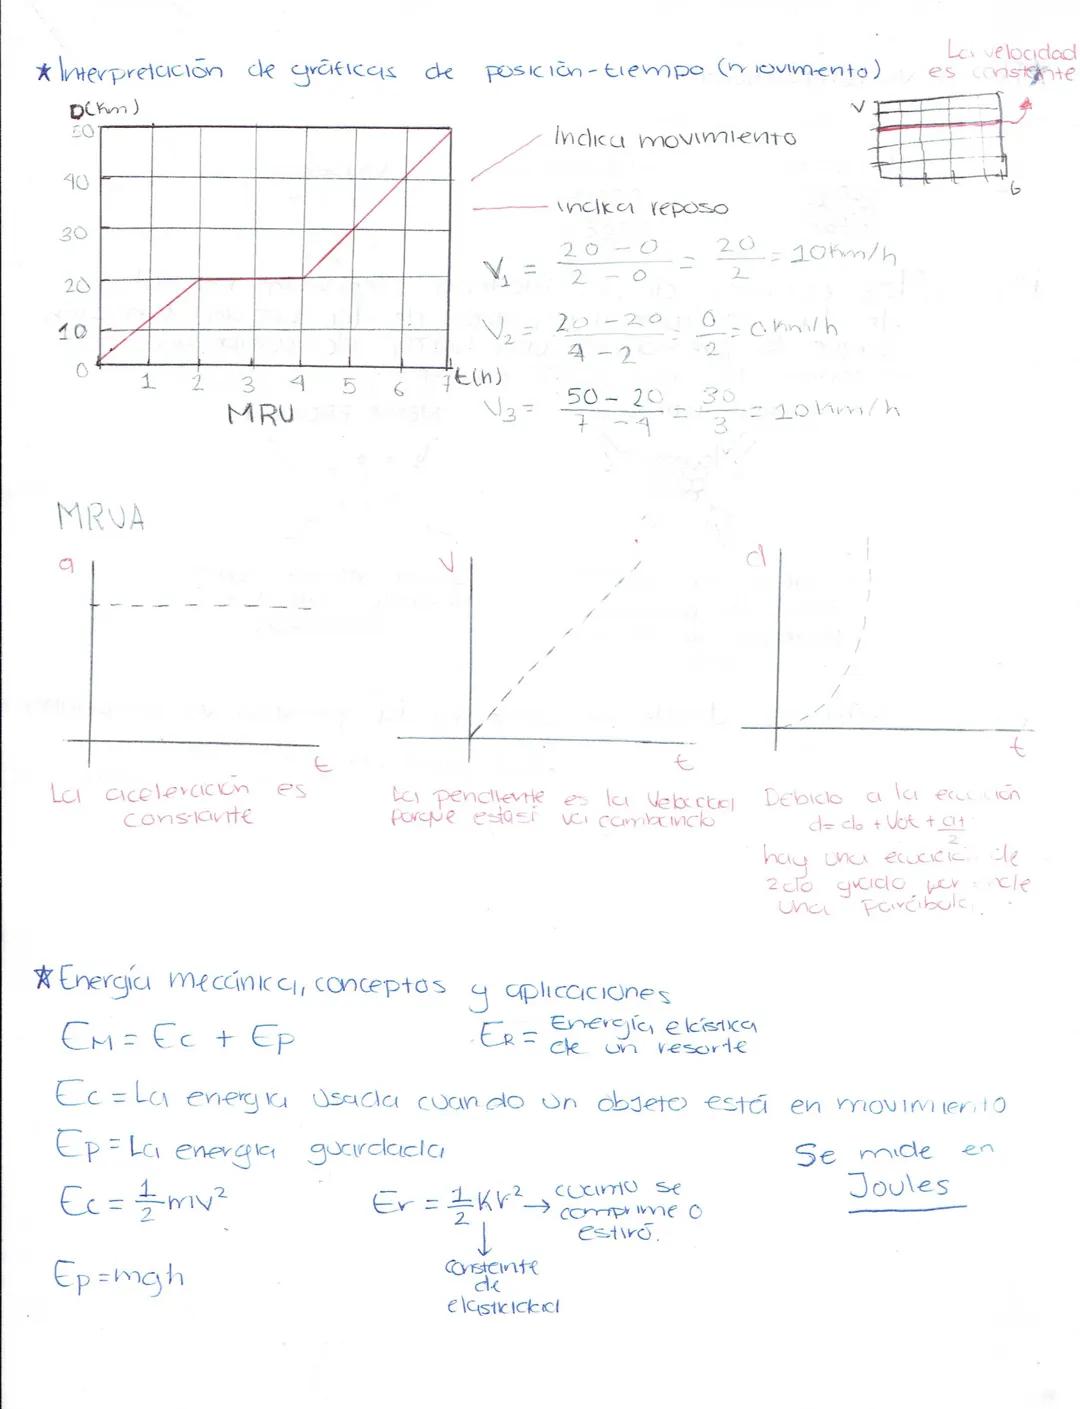 * Interpretación de gráficas de posición-tiempo (movimiento)
La velocidad
es constante
D(Km)
50
40
30
20
10
0
1 2 3 4 5 6 7 t(h)
MRU
indica movimiento
indica reposo
V
6
V₁ = (20 - 0)/(2 - 0) = 20/2 = 10Km/h
V₂ = (20 - 20)/(4 - 2) = 0/2 = 0 Km/h
V₃ = (50 - 20)/(7 - 4) = 30/3 = 10 Km/h
MRUA
a
t
La aceleración es
constante
V
t
La pendiente es la velocidad
porque esta sí va cambiando
d
t
Debido a la ecuación
d = do + Vot + at/2
hay una ecuación de
2do grado, por ende
una Parábola.
* Energía mecánica, conceptos y aplicaciones
EM = Ec + Ep
ER = Energía elástica
de un resorte
Ec = La energía usada cuando un objeto está en movimiento
Ep = La energía guardada
Se mide en
Joules
Ec = 1/2 mv²
Er = 1/2 Kr² → cuanto se
comprime o
estiró.
↓
constante
de
elasticidad
Ep = mgh